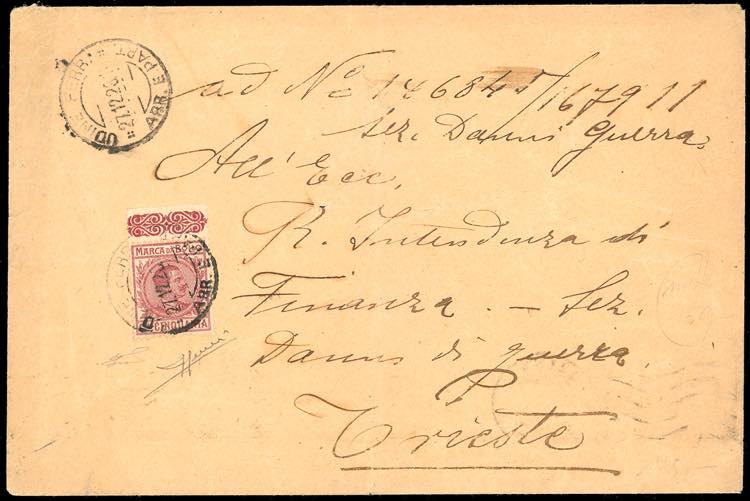 UDINE FERR. * ARR. E PART. *
27.12.24
ad No 146845/167911
Sez. Danni Guerra
All' Ecc.
R. Intendenza di
Finanza. - Sez.
Danni di guerra.
Trieste
MARCA DA BOLLO
CINQUANTA
ARR. E